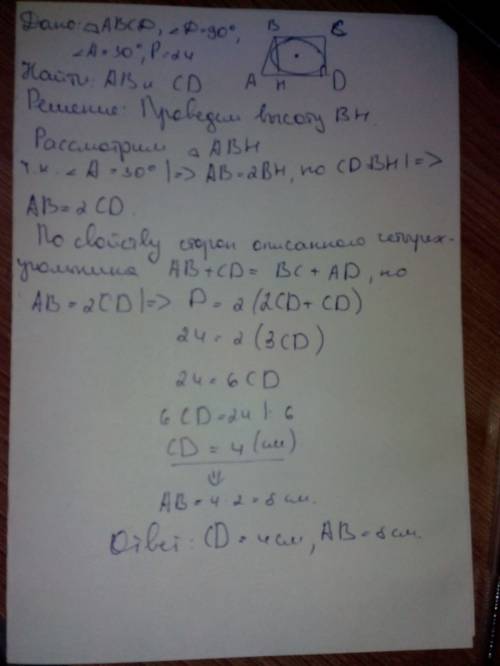 Дано: △ABCD, ∠D=90°,
∠A=30°, P=24
B C
A H D
Найти: AB и CD
Решение: Проведем высоту BH.
Рассмотрим △ ABH
т.к. ∠A=30° |=> AB=2BH, но CD=BH |=>
AB=2CD.
По свойству сторон описанного четырех-
угольника AB+CD= BC+AD, но
AB=2CD |=> P=2(2CD+CD)
24=2(3CD)
24=6CD
6CD=24 |:6
CD=4(см)
⇓
AB=4·2=8см.
Ответ: CD=4см, AB=8см.